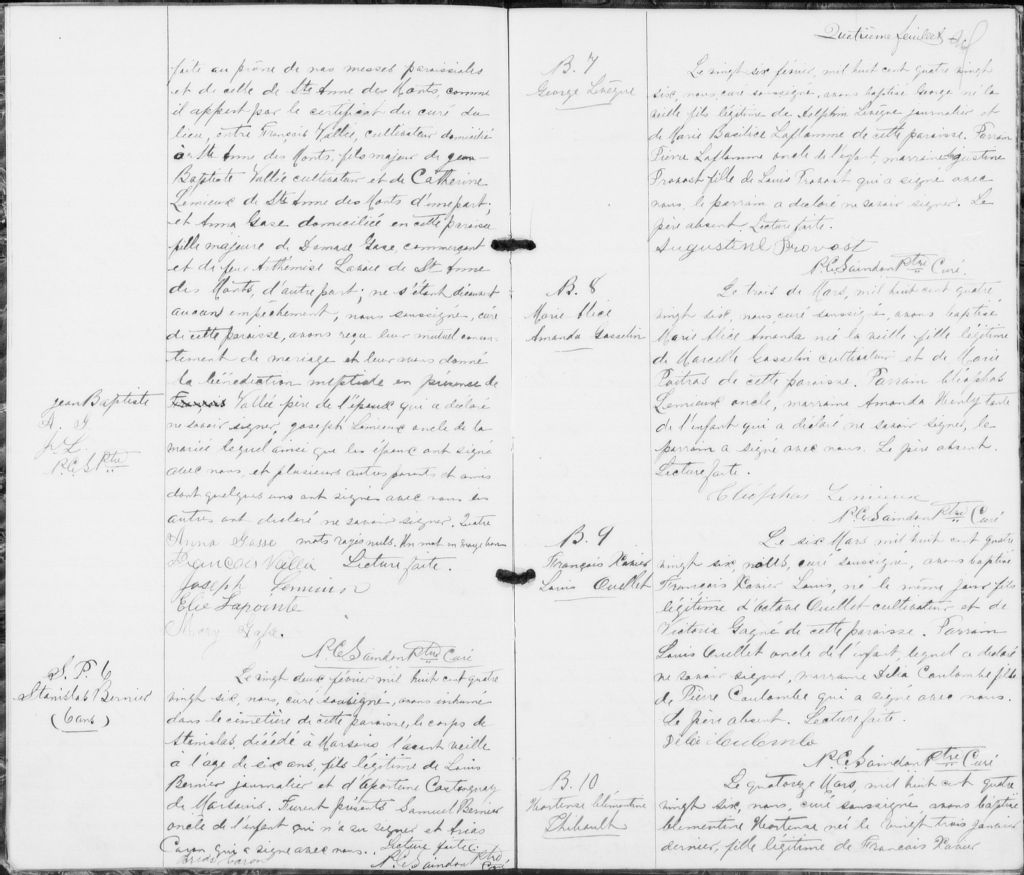 faite au prône de nos messes paroissiales
et de celle de Ste Anne des Monts, comme
il appert par le certificat du curé du
lieu, entre François Vallée, cultivateur domicilié
à Ste Anne des Monts, fils majeur de Jean
Baptiste Vallée cultivateur et de Catherine
Lemieux de Ste Anne des Monts d'une part;
et Anna Gasse domiciliée en cette paroisse
fille majeure de Damase Gasse commerçant
et de feu Arthémise Lavoie de Ste Anne
des Monts, d'autre part; ne s'étant découvert
aucun empêchement, nous soussigné, curé
de cette paroisse, avons reçu leur mutuel consen-
tement de mariage et leur avons donné
la bénédiction nuptiale en présence de
Jean Baptiste
A. G
J. L
N.C.S. Ptre
Vallée père de l'époux qui a déclaré
ne savoir signer, Joseph Lemieux oncle de la
mariée lequel ainsi que les époux ont signé
avec nous et plusieurs autres parents et amis
dont quelques uns ont signé avec nous les
autres ont déclaré ne savoir signer. Quatre
Anna Gasse mots rayés nuls. Un mot en marge bon
François Vallée Lecture faite.
Joseph Lemieux
Elie Lapointe
Mary
N.C. Saindon Ptre Curé
S. P. 6
Stanislas Bernier
(6 ans)
Le vingt deux février mil huit cent quatre
vingt six, nous, curé soussigné, avons inhumé
dans le cimetière de cette paroisse, le corps de
Stanislas, décédé à Marsouis l'avant veille
à l'âge de six ans, fils légitime de Louis
Bernier journalier et d'Apolline Castonguay
de Marsouis. Furent présents Samuel Bernier
oncle de l'enfant qui n'a su signer et Arias
Caron qui a signé avec nous. Lecture faite.
Arias Caron N.C. Saindon Ptre
Curé
Quatrième feuillet
B. 7
George Lévêque
Le vingt six février, mil huit cent quatre vingt
six, nous, curé soussigné, avons baptisé George né la
veille fils légitime de Adolphin Lévêque journalier et
de Marie Basilice Laflamme de cette paroisse. Parrain
Pierre Laflamme oncle de l'enfant, marraine Agustine
Provost fille de Louis Provost qui a signé avec
nous, le parrain a déclaré ne savoir signer. Le
père absent. Lecture faite.
Augustine Provost
N.C. Saindon Ptre Curé
B. 8
Marie Alice
Amanda Gosselin
Le trois de Mars, mil huit cent quatre
vingt six, nous, curé soussigné, avons baptisé
Marie Alice Amanda née la veille fille légitime
de Marcelle Gosselin cultivateur et de Marie
Poitras de cette paroisse. Parrain Cléophas
Lemieux oncle, marraine Amanda tante
de l'enfant qui a déclaré ne savoir signer, le
parrain a signé avec nous. Le père absent.
Lecture faite.
Cléophas Lemieux
N.C. Saindon Ptre Curé
B. 9
François Xavier
Louis Ouellet
Le six Mars, mil huit cent quatre
vingt six, nous, curé soussigné, avons baptisé
François Xavier Louis, né le même jour fils
légitime d'Octave Ouellet cultivateur et de
Victoria Gagné de cette paroisse. Parrain
Louis Ouellet oncle de l'enfant, lequel a déclaré
ne savoir signer, marraine Délia Coulombe fille
de Pierre Coulombe qui a signé avec nous.
Le père absent. Lecture faite.
Délia Coulombe
N.C. Saindon Ptre Curé
B. 10
Hortense Clémentine
Thibault
Le quatorze Mars, mil huit cent quatre
vingt six, nous, curé soussigné avons baptisé
Clémentine Hortense née le vingt trois janvier
dernier, fille légitime de François Xavier